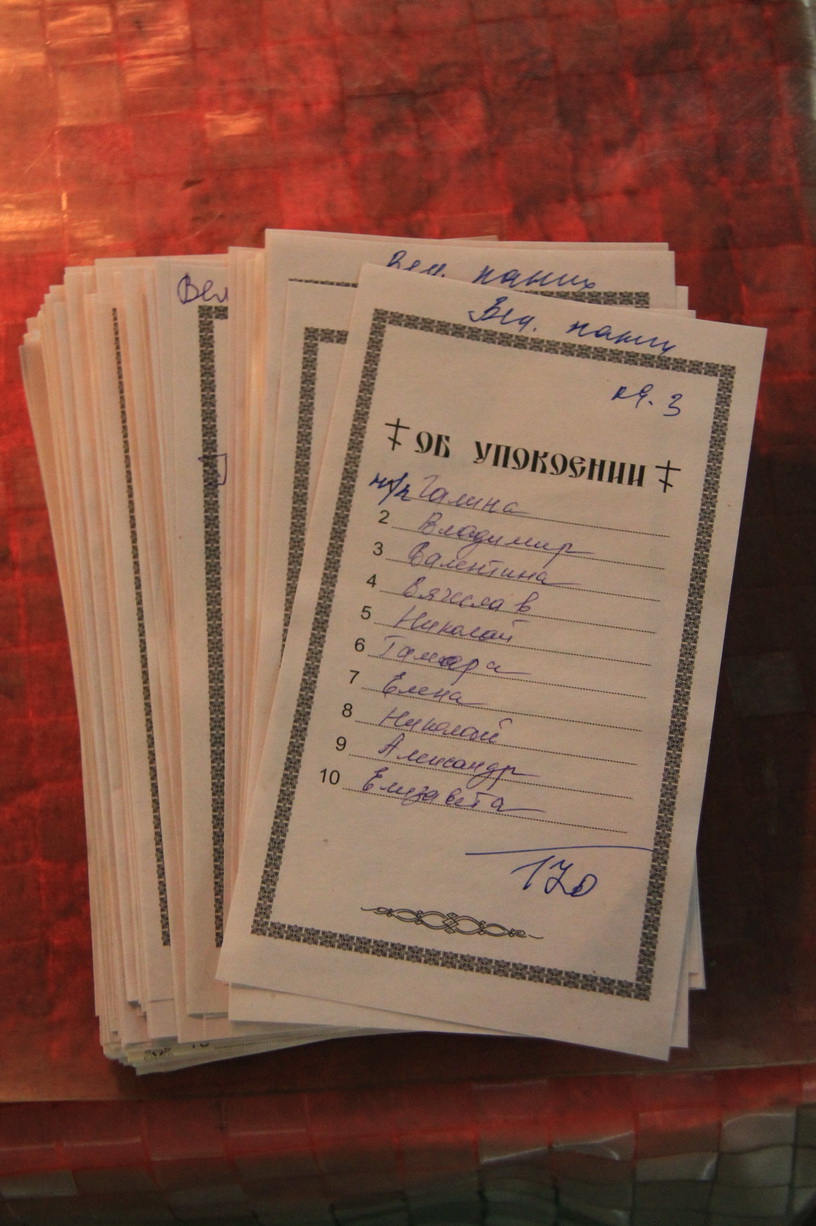 Вел
Вел. паних
Вел. паних
кл. 3
ОБ УПОКОЕНИИ
н/п Галина
2 Владимир
3 Валентина
4 Вячеслав
5 Николай
6 Тамара
7 Елена
8 Николай
9 Александр
10 Елизавета
170